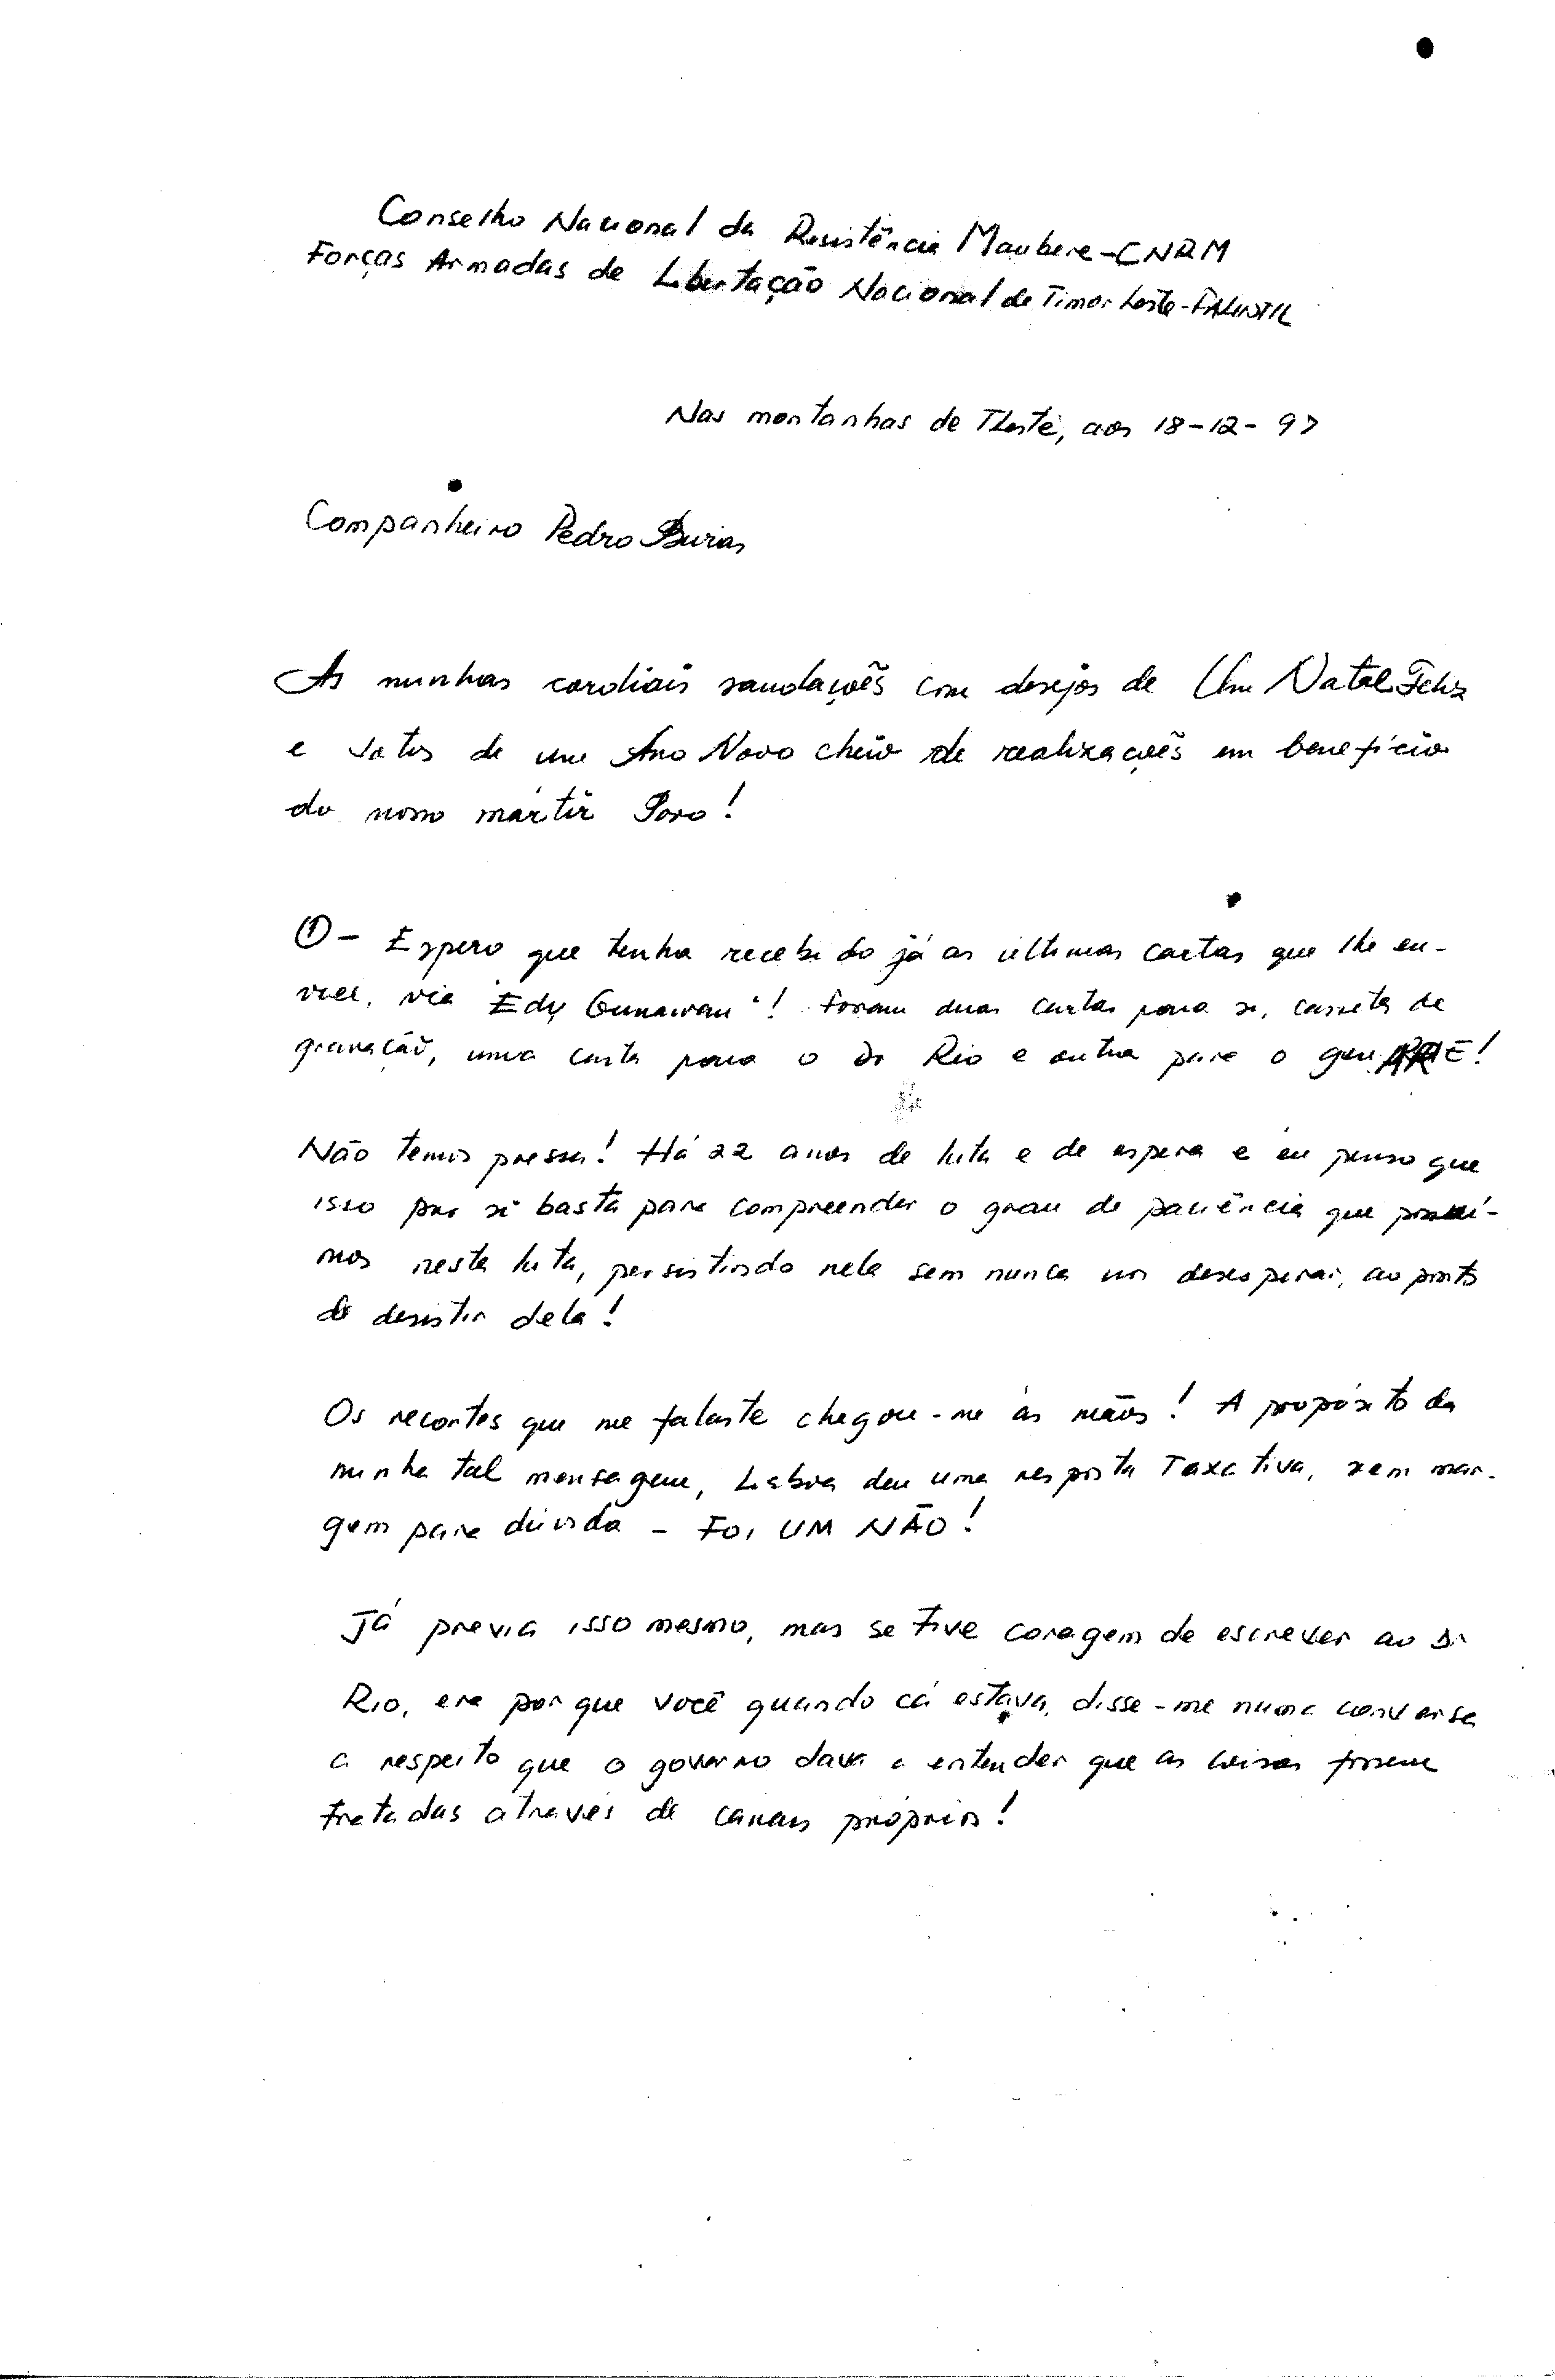 Conselho Nacional da Resistência Maubere-CNRM
Forças Armadas de Libertação Nacional de Timor Leste-FALINTIL
Nas montanhas de TLeste, aos 18-12-97
Companheiro Pedro
As minhas cordiais saudações com desejos de Um Natal Feliz
e votos de um Ano Novo cheio de realizações em benefício
do nosso mártir Povo!
① - Espero que tenha recebido já as últimas cartas que lhe en-
viei, via "Edy Gunawan"! Foram duas cartas para si, cassete de
gravação, uma carta para o Dr Rio e outra para o gen.
Não temos pressa! Há 22 anos de luta e de espera e eu penso que
isso por si basta para compreender o grau de paciência que possuí-
mos nesta luta, persistindo nela sem nunca nos desesperar, ao ponto
de desistir dela!
Os recortes que me falaste chegou-me às mãos! A propósito da
minha tal mensagem, Lisboa deu uma resposta Taxativa, sem mar-
gem para dúvida - FOI UM NÃO!
Já previa isso mesmo, mas se tive coragem de escrever ao Dr
Rio, era porque você quando cá estava, disse-me numa conversa
a respeito que o governo dava a entender que as coisas fossem
tratadas através de canais próprios!